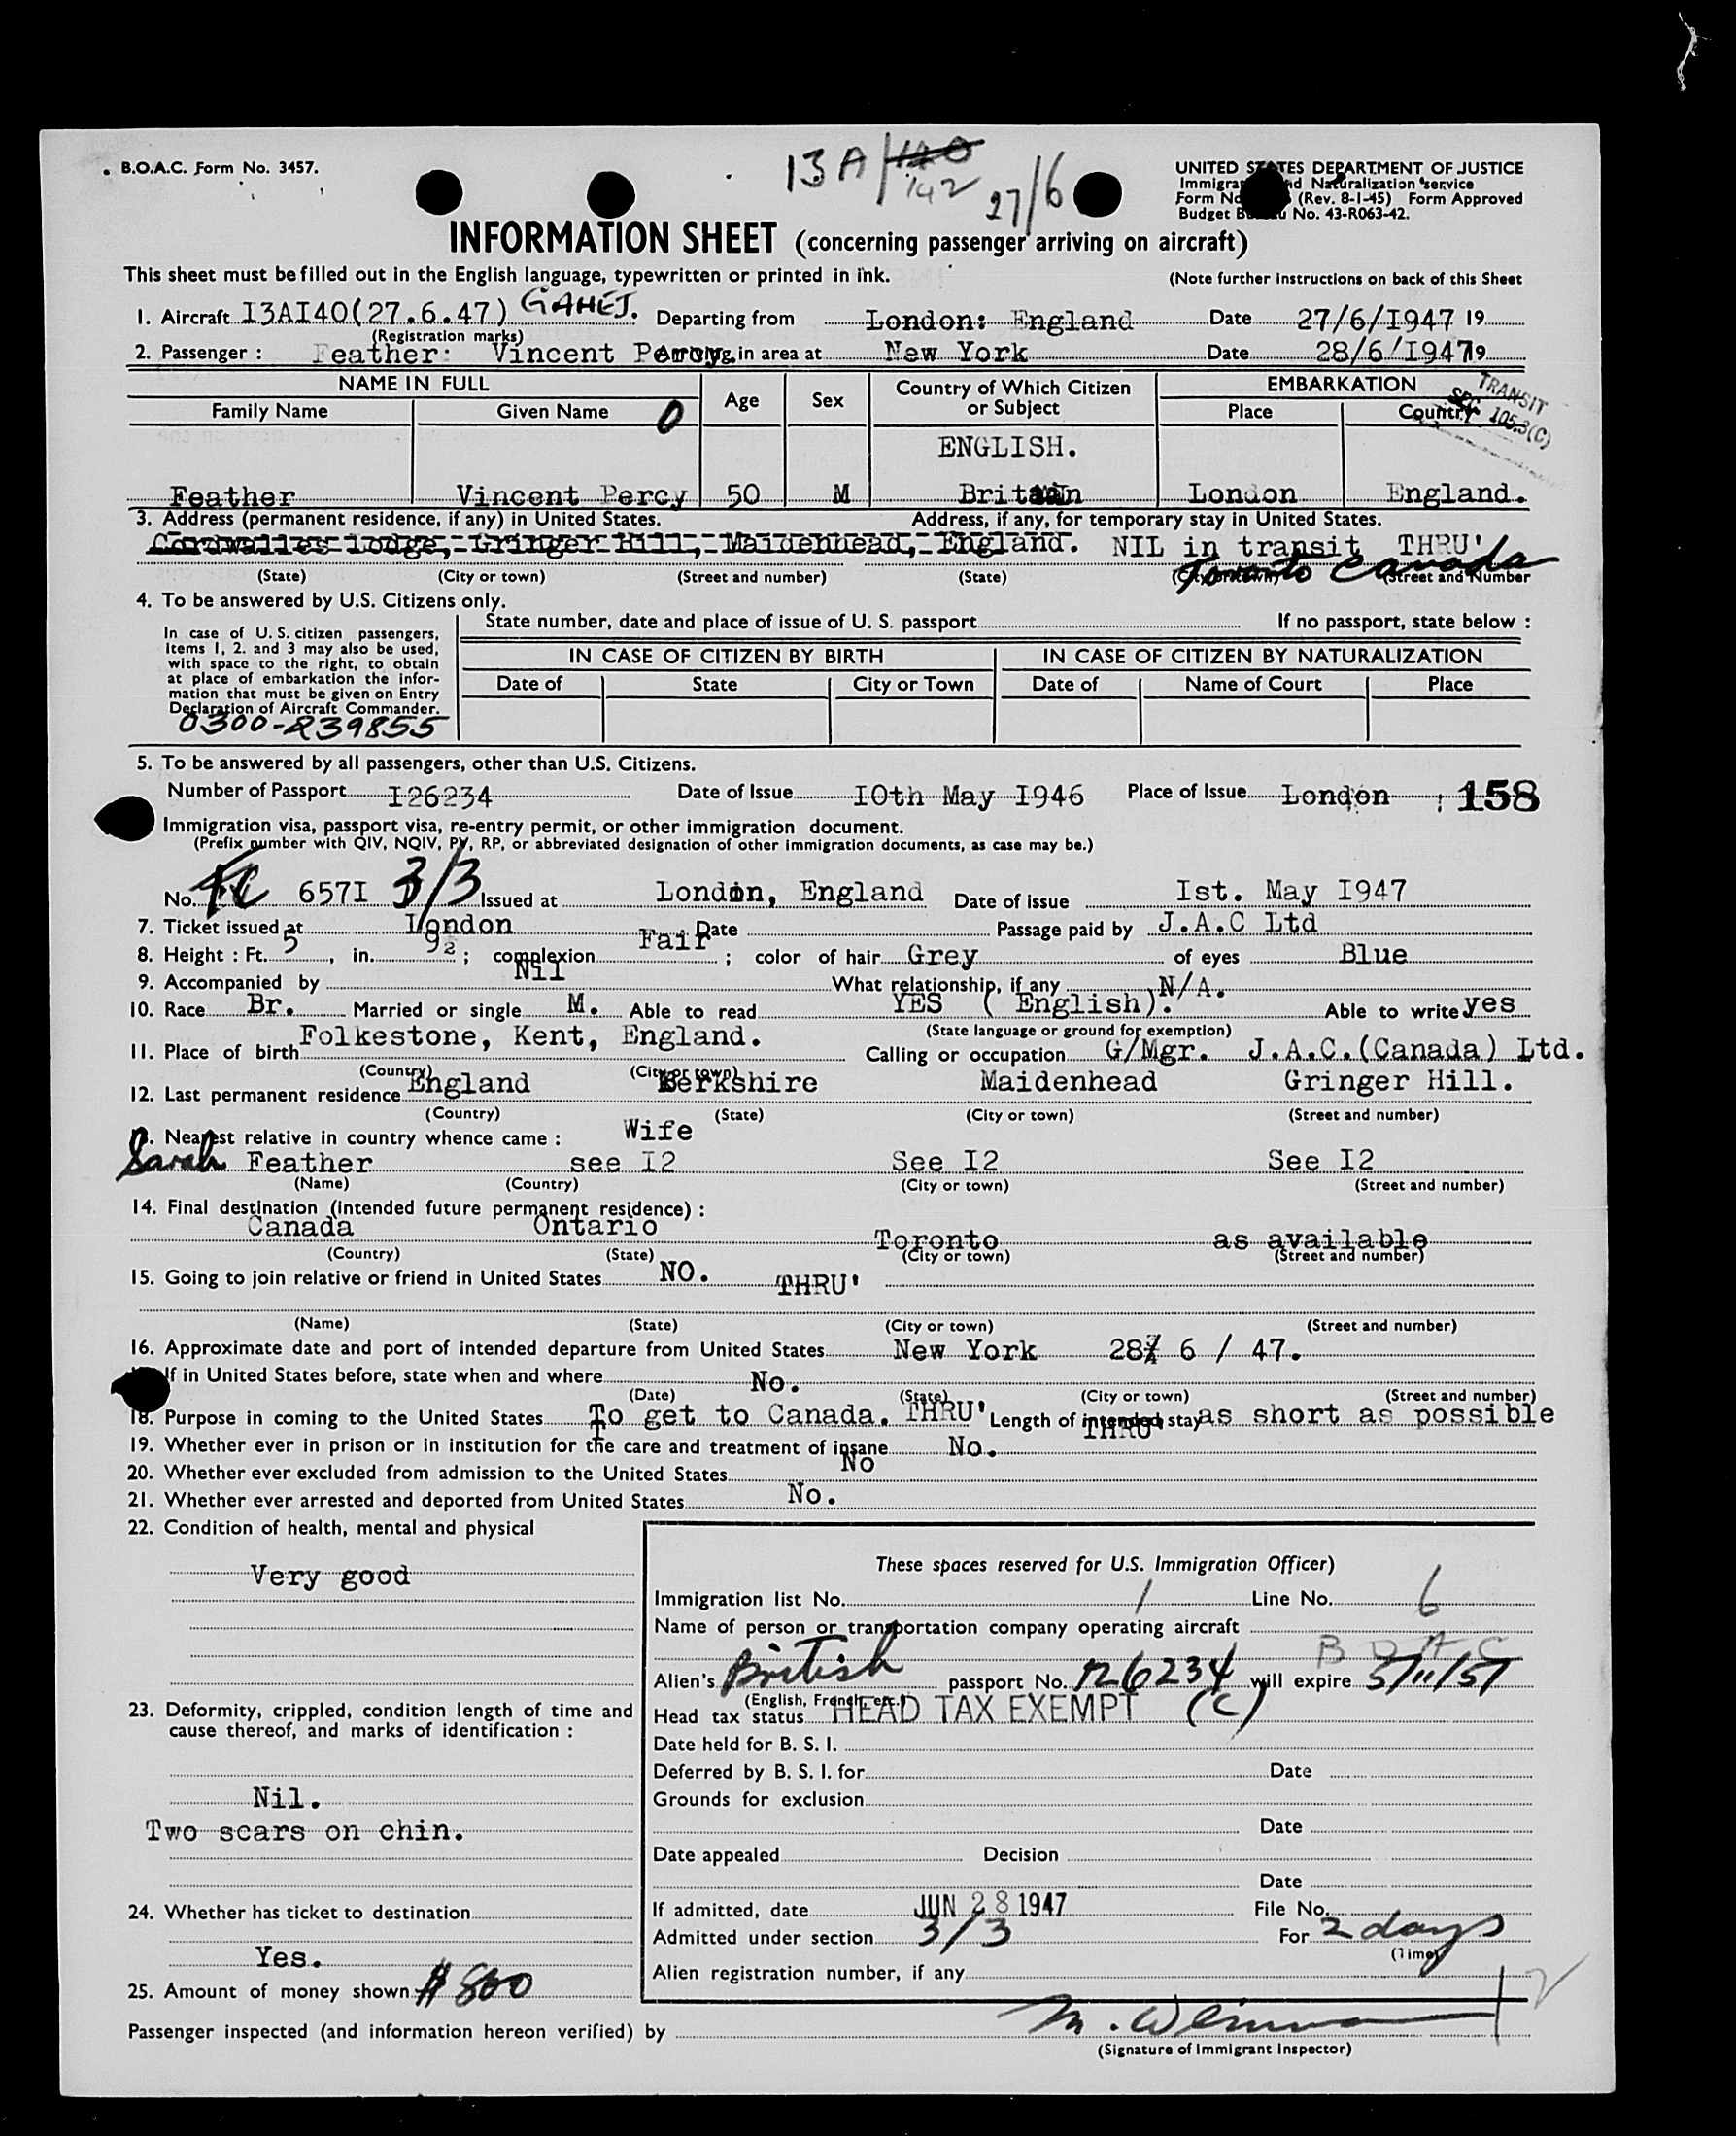 B.O.A.C. Form No. 3457.
13A/140
142
27/6
UNITED STATES DEPARTMENT OF JUSTICE
Immigra d Naturalization service
Form No (Rev. 8-1-45) Form Approved
Budget B u No. 43-R063-42.
INFORMATION SHEET (concerning passenger arriving on aircraft)
This sheet must be filled out in the English language, typewritten or printed in ink. (Note further instructions on back of this Sheet
1. Aircraft I3AI40(27.6.47) GAHEJ. Departing from London: England Date 27/6/I947 19
(Registration marks)
2. Passenger : Feather: Vincent Percy. Arriving in area at New York Date 28/6/I947 19
NAME IN FULL Age Sex Country of Which Citizen or Subject EMBARKATION
Family Name Given Name O Place Country
TRANSIT
SEC. 105.3(C)
ENGLISH.
Feather Vincent Percy 50 M Britain London England.
3. Address (permanent residence, if any) in United States. Address, if any, for temporary stay in United States.
Cordwalles Lodge, Gringer Hill, Maidenhead, England. NIL in transit THRU'
Toronto Canada
(State) (City or town) (Street and number) (State) (City or town) (Street and Number
4. To be answered by U.S. Citizens only.
State number, date and place of issue of U. S. passport If no passport, state below :
In case of U. S. citizen passengers,
items 1, 2. and 3 may also be used,
with space to the right, to obtain
at place of embarkation the infor-
mation that must be given on Entry
Declaration of Aircraft Commander.
0300-239855
IN CASE OF CITIZEN BY BIRTH IN CASE OF CITIZEN BY NATURALIZATION
Date of State City or Town Date of Name of Court Place
5. To be answered by all passengers, other than U.S. Citizens.
Number of Passport I26234 Date of Issue IOth May I946 Place of Issue London 158
Immigration visa, passport visa, re-entry permit, or other immigration document.
(Prefix number with QIV, NQIV, PV, RP, or abbreviated designation of other immigration documents, as case may be.)
No. 657I 3/3 Issued at London, England Date of issue Ist. May I947
7. Ticket issued at London Date Passage paid by J.A.C Ltd
8. Height : Ft. 5, in. 9½ ; complexion Fair ; color of hair Grey of eyes Blue
9. Accompanied by Nil What relationship, if any N/A.
10. Race Br. Married or single M. Able to read YES ( English). Able to write yes
(State language or ground for exemption)
11. Place of birth Folkestone, Kent, England. Calling or occupation G/Mgr. J.A.C.(Canada) Ltd.
(Country) (City or town)
12. Last permanent residence England Berkshire Maidenhead Gringer Hill.
(Country) (State) (City or town) (Street and number)
. Nearest relative in country whence came : Wife
Sarah Feather see I2 See I2 See I2
(Name) (Country) (City or town) (Street and number)
14. Final destination (intended future permanent residence) :
Canada Ontario Toronto as available
(Country) (State) (City or town) (Street and number)
15. Going to join relative or friend in United States NO. THRU'
(Name) (State) (City or town) (Street and number)
16. Approximate date and port of intended departure from United States New York 28/ 6 / 47.
If in United States before, state when and where No.
(Date) (State) (City or town) (Street and number)
18. Purpose in coming to the United States To get to Canada. THRU' Length of intended stay as short as possible
THRU
19. Whether ever in prison or in institution for the care and treatment of insane No.
20. Whether ever excluded from admission to the United States No
21. Whether ever arrested and deported from United States No.
22. Condition of health, mental and physical
Very good
23. Deformity, crippled, condition length of time and
cause thereof, and marks of identification :
Nil.
Two scars on chin.
24. Whether has ticket to destination
Yes.
25. Amount of money shown $800
These spaces reserved for U.S. Immigration Officer)
Immigration list No. 1 Line No. 6
Name of person or transportation company operating aircraft
B O A C
Alien's British passport No. 126234 will expire 5/11/51
(English, French, etc.)
Head tax status HEAD TAX EXEMPT (C)
Date held for B. S. I.
Deferred by B. S. I. for Date
Grounds for exclusion
Date
Date appealed Decision
Date
If admitted, date JUN 28 1947 File No.
Admitted under section 3/3 For 2 days
(Time)
Alien registration number, if any
Passenger inspected (and information hereon verified) by
(Signature of Immigrant Inspector)